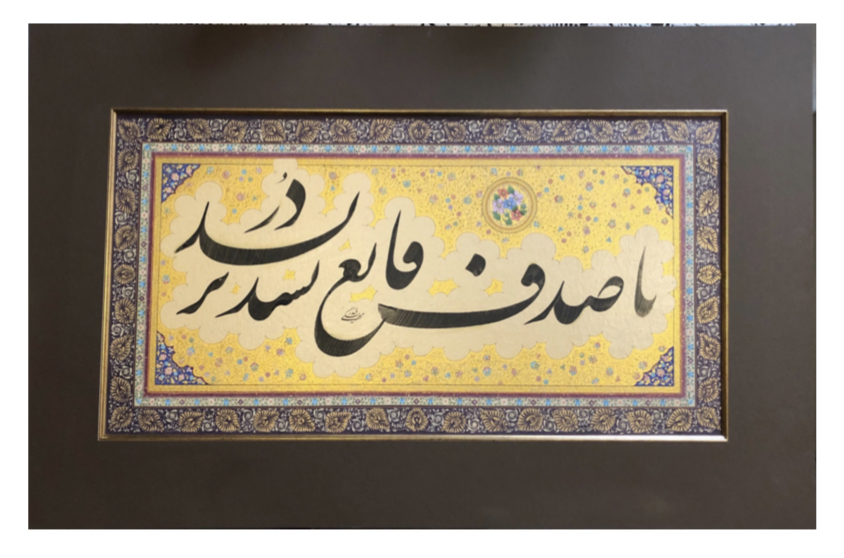 تا صدف قانع نشد پر دُر نشد